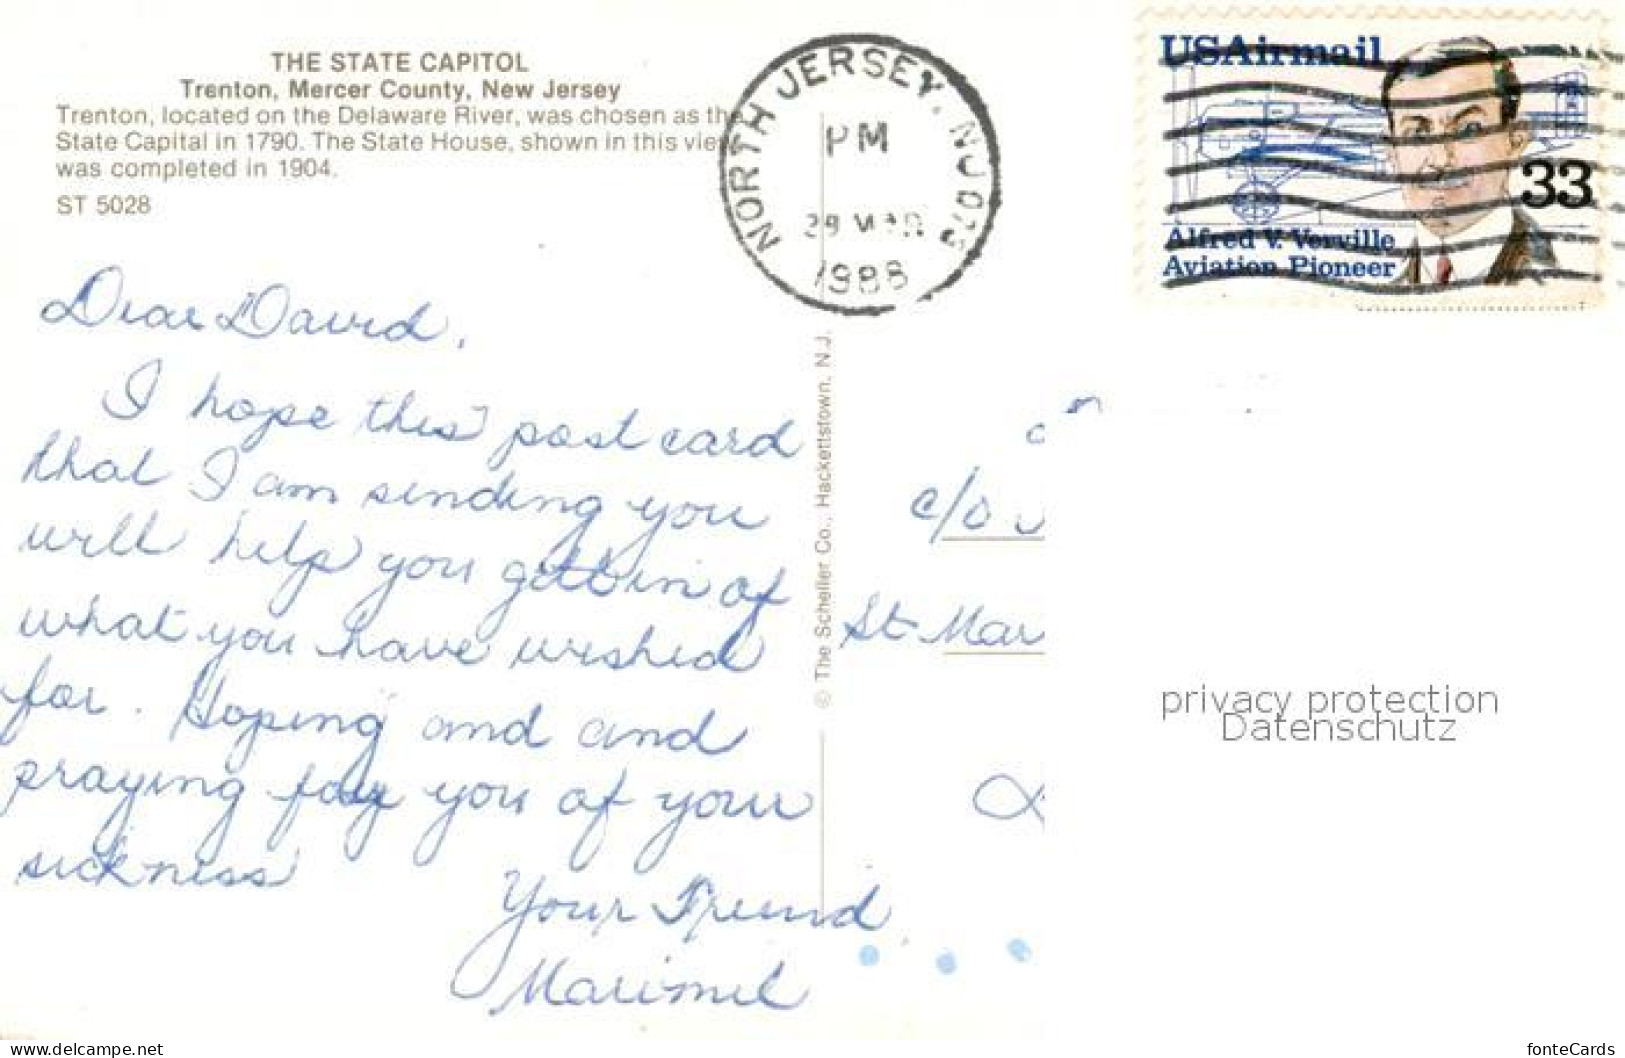 THE STATE CAPITOL
Trenton, Mercer County, New Jersey
Trenton, located on the Delaware River, was chosen as the
State Capital in 1790. The State House, shown in this view
was completed in 1904.
ST 5028
NORTH JERSEY, NJ
PM
29 MAR
1988
USAirmail
33
Alfred V. Verville
Aviation Pioneer
Dear David,
I hope this post card
that I am sending you
will help you of
what you have wished
for. Hoping and and
praying for you of your
sickness
Your Friend
© The Scheller Co., Hackettstown, N.J.
c/o
St Mar
privacy protection
Datenschutz
www.delcampe.net
fonteCards